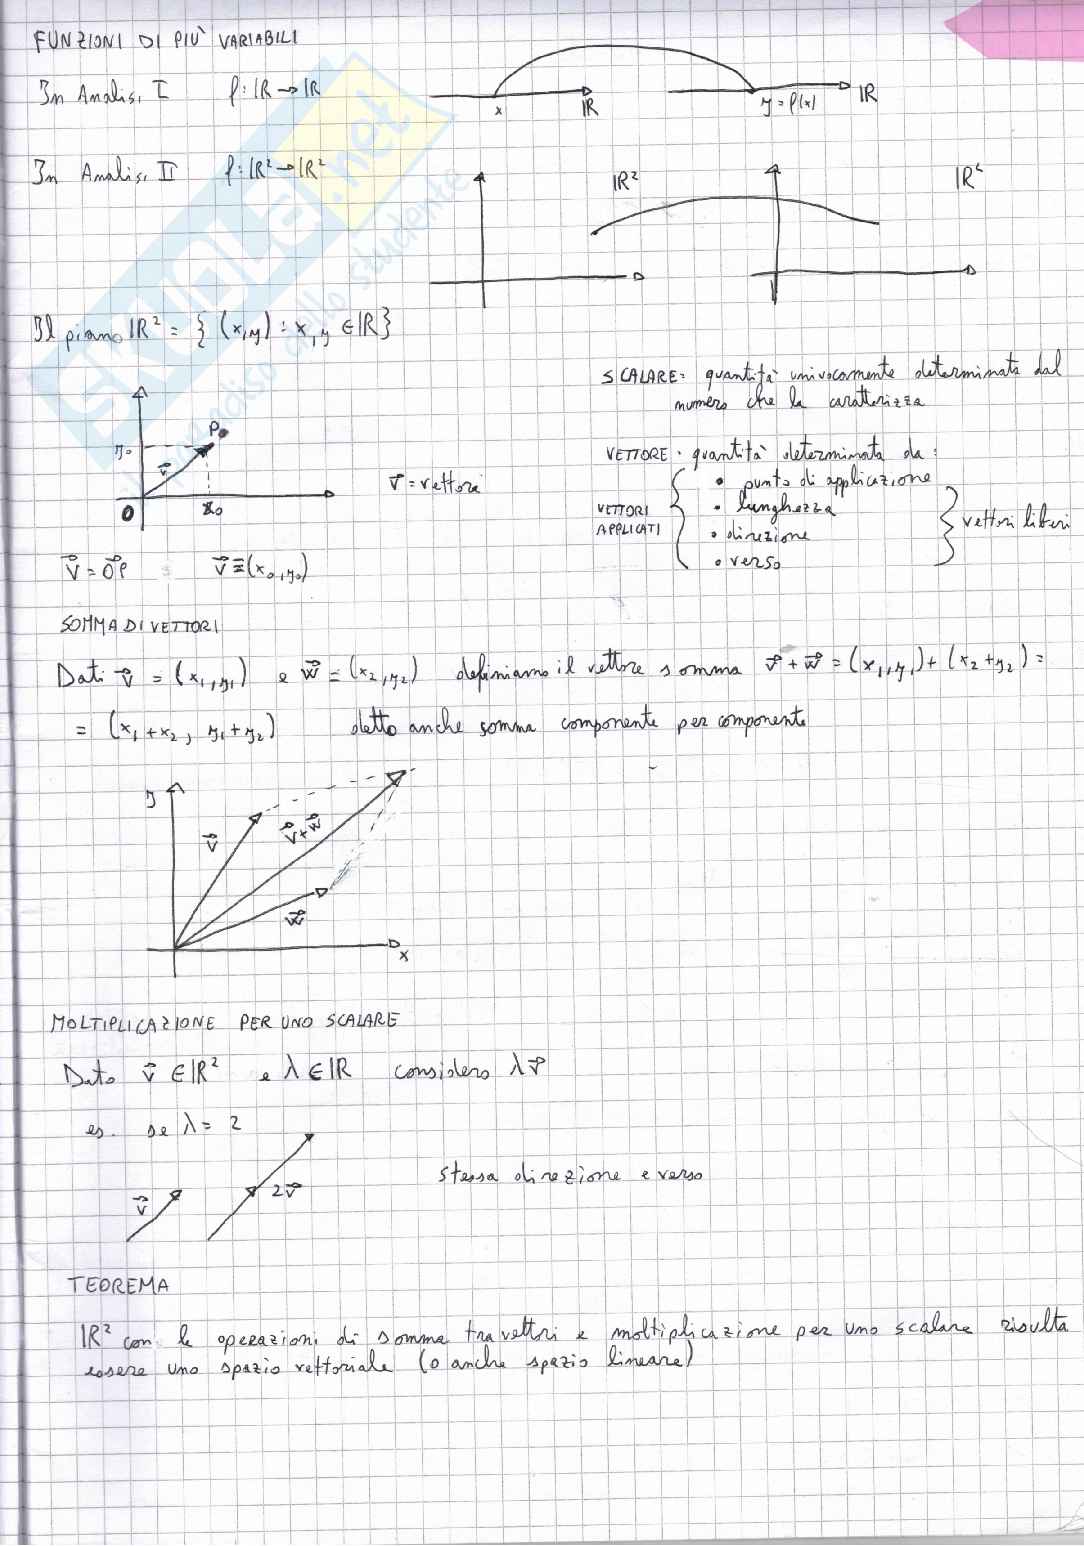 FUNZIONI DI PIÙ VARIABILI
In Analisi I f: ℝ → ℝ
x ℝ y = f(x) ℝ
In Analisi II f: ℝ² → ℝ²
ℝ² ℝ²
Il piano ℝ² = { (x,y) : x, y ∈ ℝ}
SCALARE: quantità univocamente determinata dal
numero che la caratterizza
y₀ P₀ v⃗
O x₀
v⃗ = vettori
VETTORE: quantità determinata da:
VETTORI APPLICATI
• punto di applicazione
• lunghezza
• direzione
• verso
vettori liberi
v⃗ = O⃗P v⃗ ≡ (x₀, y₀)
SOMMA DI VETTORI
Dati v⃗ = (x₁, y₁) e w⃗ = (x₂, y₂) definiamo il vettore somma v⃗ + w⃗ = (x₁, y₁) + (x₂ + y₂) =
= (x₁ + x₂, y₁ + y₂) detto anche somma componente per componente
y v⃗ v⃗+w⃗ w⃗ x
MOLTIPLICAZIONE PER UNO SCALARE
Dato v⃗ ∈ ℝ² e λ ∈ ℝ considero λv⃗
es. se λ = 2
v⃗ 2v⃗ stessa direzione e verso
TEOREMA
ℝ² con le operazioni di somma tra vettori e moltiplicazione per uno scalare risulta
essere uno spazio vettoriale (o anche spazio lineare)
SKUOLA.net
dello studente